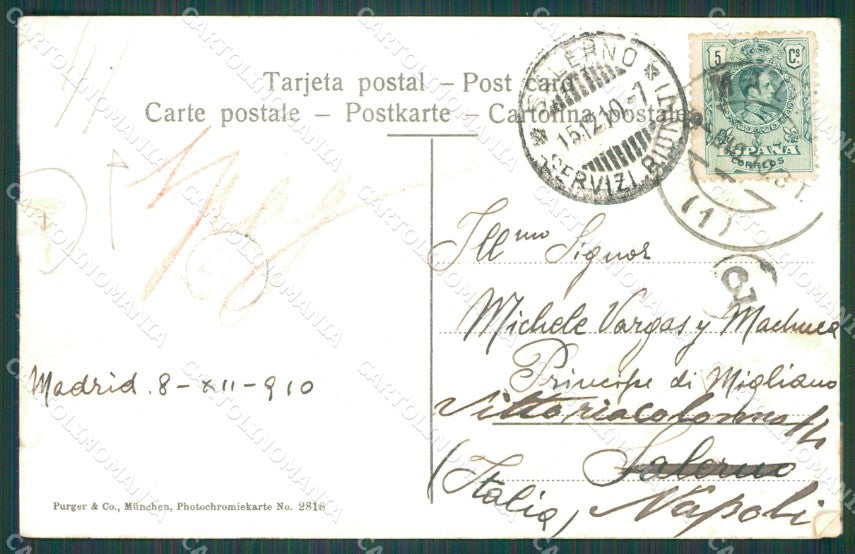 Tarjeta postal – Post card
Carte postale – Postkarte – Cartolina postale
5 Cs
ESPAÑA
CORREOS
SALERNO
15.12.10-7
SERVIZI
(1)
Ill.mo Signor
Michele Vargas y Machuca
Principe di Migliano
Vittoria Colonna
Salerno
(Italia) Napoli
Madrid. 8-XII-910
Purger & Co., München, Photochromiekarte No. 2818
CARTOLINOMANIA